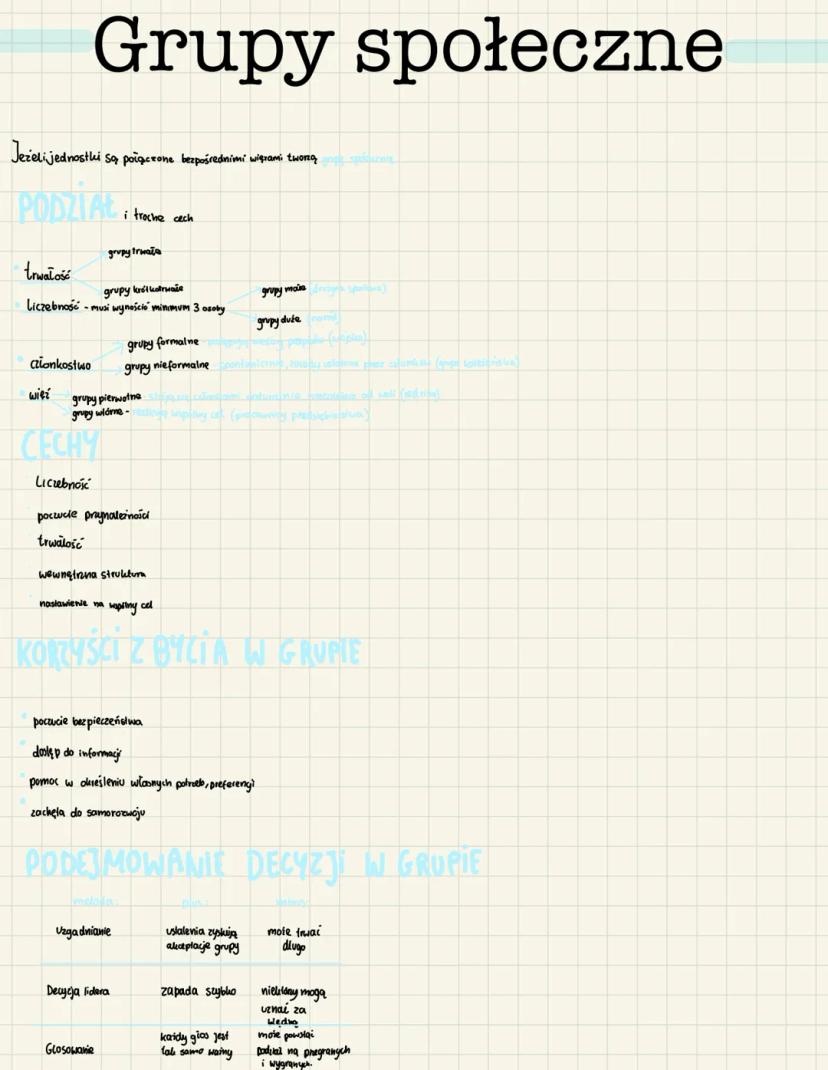 Grupy społeczne
Jeżeli jednostki są połączone bezpośrednimi więzami tworzą grupę społeczną
PODZIAŁ i trochę cech
grupy trwałe
trwałość
grupy krótkotrwałe
grupy małe (drużyna sportowa)
liczebność - musi wynosić minimum 3 osoby
grupy duże (naród)
grupy formalne - (wojsko)
członkostwo
grupy nieformalne - spontanicznie, zasady ustalone przez członków (grupa koleżeńska)
więź
grupy pierwotne - stają się członkami naturalnie niezależnie od woli (rodzina)
grupy wtórne - realizują wspólny cel (pracownicy przedsiębiorstwa)
CECHY
liczebność
poczucie przynależności
trwałość
wewnętrzna struktura
nastawienie na wspólny cel
KORZYŚCI Z BYCIA W GRUPIE
poczucie bezpieczeństwa
dostęp do informacji
pomoc w określeniu własnych potrzeb, preferencji
zachęta do samorozwoju
PODEJMOWANIE DECYZJI W GRUPIE
metoda: plus: minus:
Uzgadnianie ustalenia zyskują może trwać
akceptację grupy długo
Decyzja lidera zapada szybko niektórzy mogą
uznać za
błędną
Głosowanie każdy głos jest może powstać
tak samo ważny podział na przegranych
i wygranych.